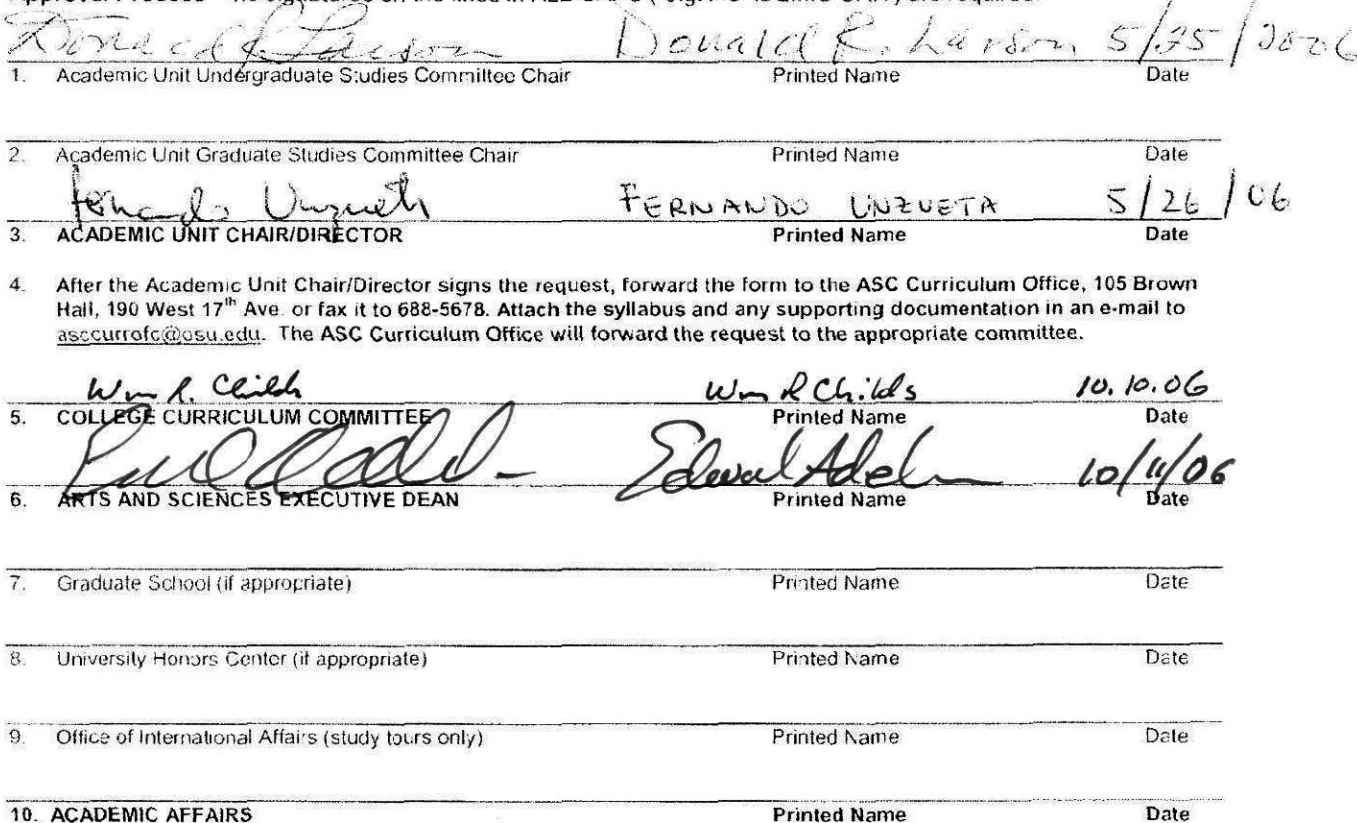 Donald R. Larson Donald R. Larson 5/25/2006
1. Academic Unit Undergraduate Studies Committee Chair Printed Name Date
2. Academic Unit Graduate Studies Committee Chair Printed Name Date
Fernando Unzueta FERNANDO UNZUETA 5/26/06
3. ACADEMIC UNIT CHAIR/DIRECTOR Printed Name Date
4. After the Academic Unit Chair/Director signs the request, forward the form to the ASC Curriculum Office, 105 Brown
Hall, 190 West 17th Ave. or fax it to 688-5678. Attach the syllabus and any supporting documentation in an e-mail to
asccurrofc@osu.edu. The ASC Curriculum Office will forward the request to the appropriate committee.
Wm R. Childs Wm R Childs 10.10.06
5. COLLEGE CURRICULUM COMMITTEE Printed Name Date
10/11/06
6. ARTS AND SCIENCES EXECUTIVE DEAN Printed Name Date
7. Graduate School (if appropriate) Printed Name Date
8. University Honors Center (if appropriate) Printed Name Date
9. Office of International Affairs (study tours only) Printed Name Date
10. ACADEMIC AFFAIRS Printed Name Date